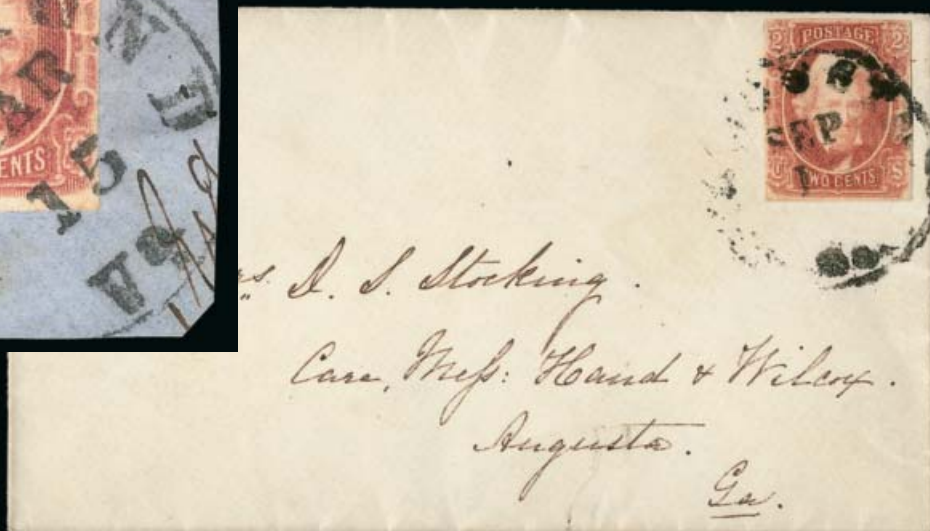 ND
AR
15
CENTS
Va
2 POSTAGE 2
SEP
1
U TWO CENTS S
D. S. Stocking.
Care, Mess: Hand & Wilcox.
Augusta.
Ga.